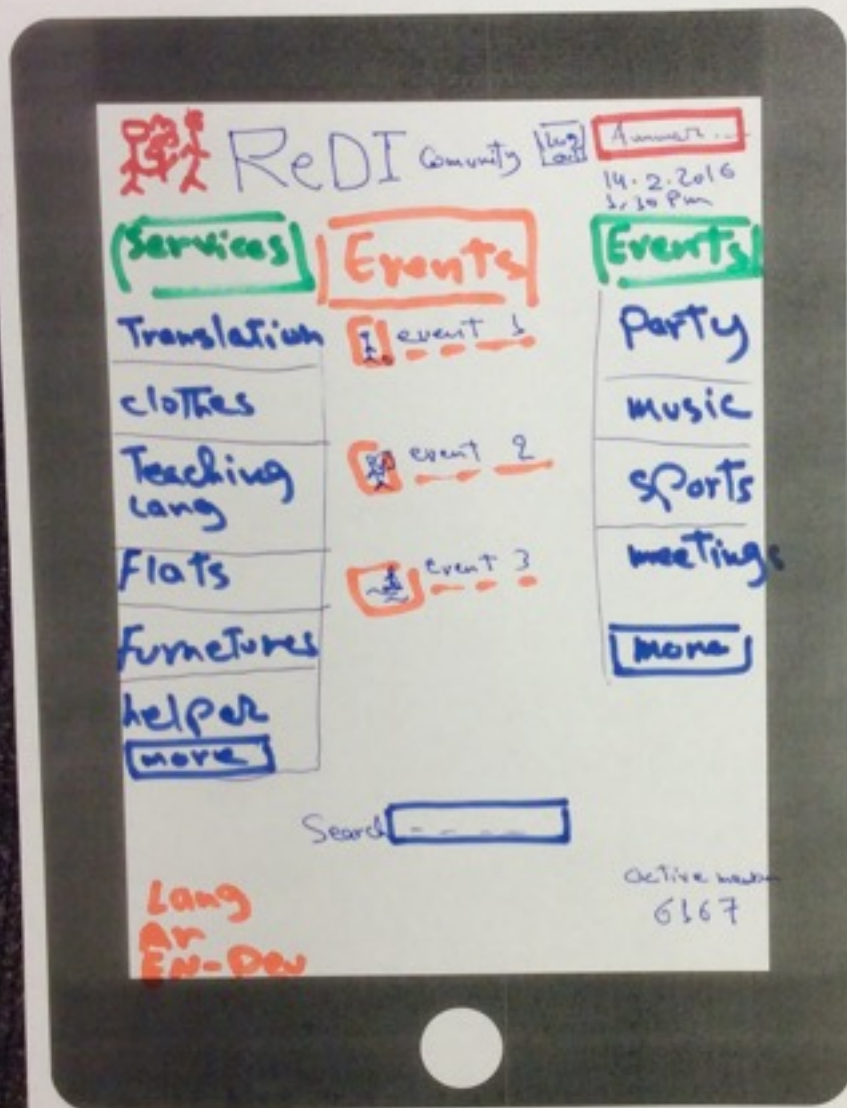 ReDI Comunity
Log out
14.2.2016
3,30 Pm
Services
Translation
clothes
Teaching
Lang
Flats
Furnetures
helper
more
Events
event 1
event 2
event 3
Events
Party
music
sports
meetings
more
Search
Active
6367
Lang
Ar